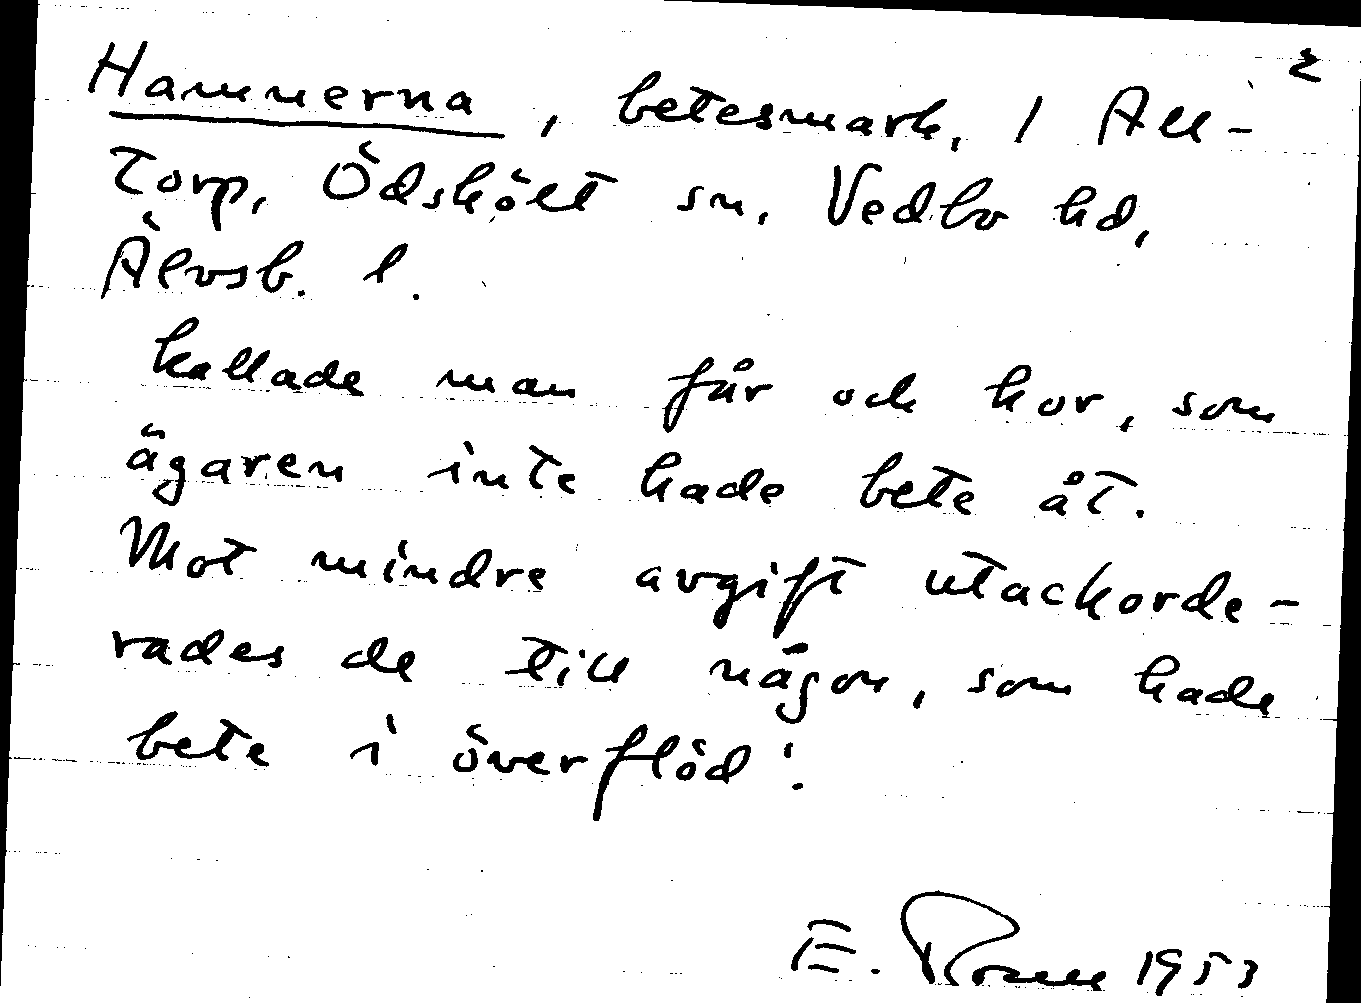 2
Hammerna, betesmark, 1 All-
torp, Ödskölt sn, Vedbo hd,
Älvsb. l.
kallade man får och kor, som
ägaren inte hade bete åt.
Mot mindre avgift utackorde-
rades de till någon, som hade
bete i överflöd'.
E. 1953